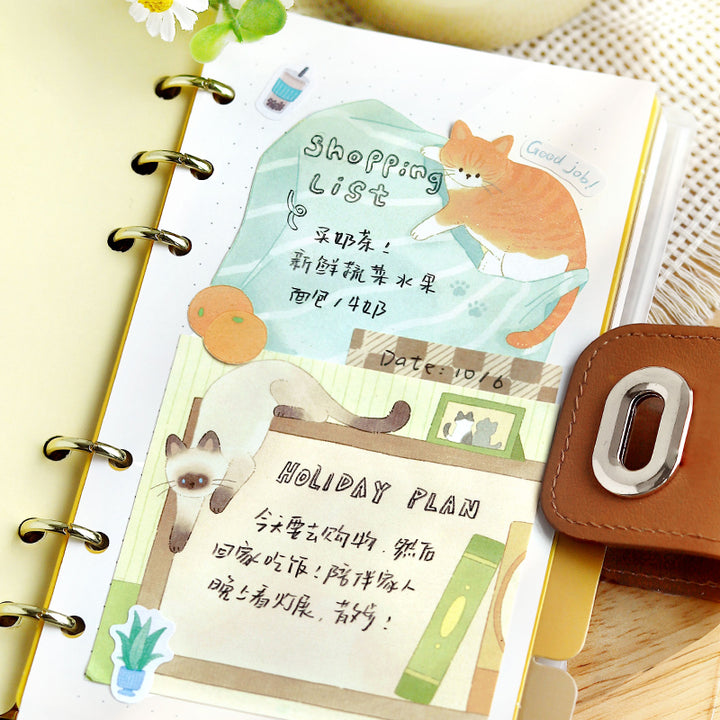 Good job!
Shopping
List
买奶茶!
新鲜蔬菜水果
面包/牛奶
Date: 10/6
HOLIDAY PLAN
今天要去购物,然后
回家吃饭!陪伴家人
晚上看灯展,散步!